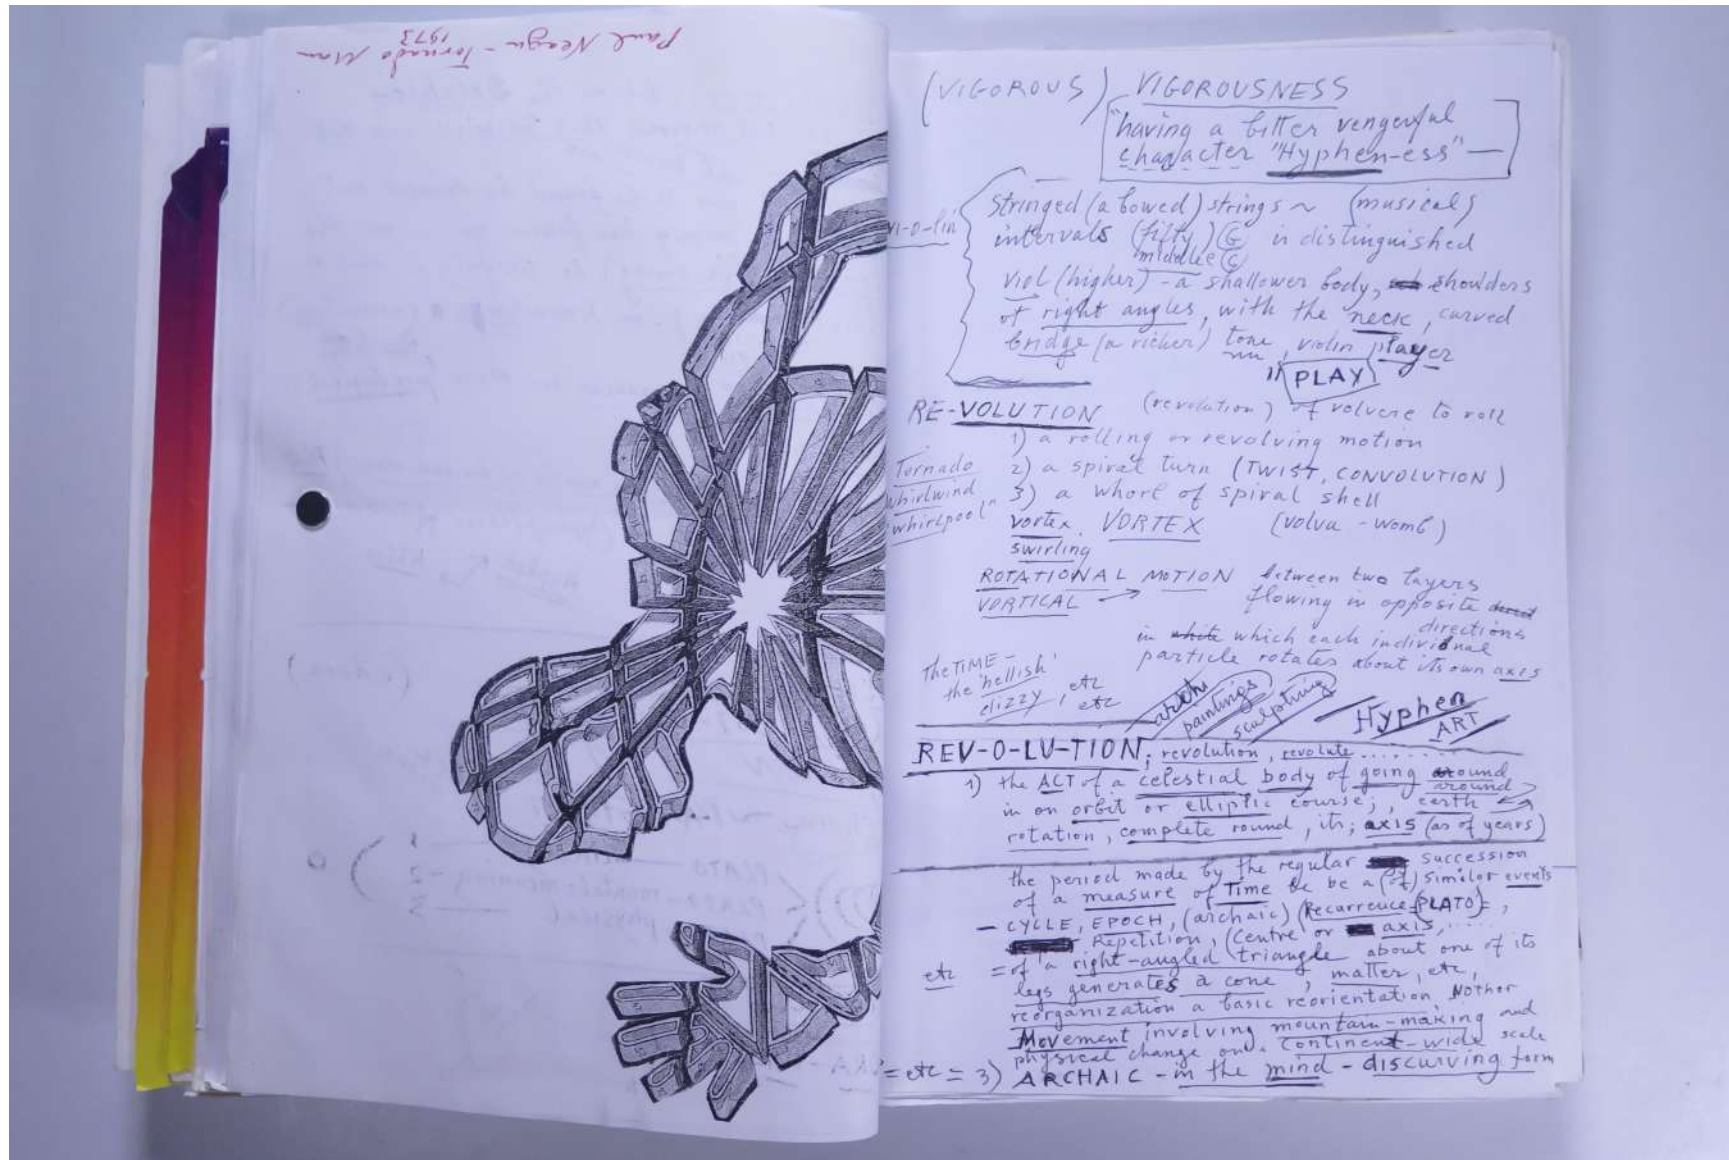 Paul Neagu - Tornado Man
1973
(VIGOROUS) VIGOROUSNESS
"having a bitter vengerful
character "Hyphen-ess" —
vi-o-lin
Stringed (a bowed) strings ~ (musical)
intervals (fifty) G is distinguished
middle C
viol (higher) - a shallower body, shoulders
of right angles, with the neck, curved
bridge (a richer) tone, violin player
" PLAY
RE-VOLUTION (revolution) of volvere to roll
1) a rolling or revolving motion
Tornado 2) a spiral turn (TWIST, CONVOLUTION)
whirlwind 3) a whorl of spiral shell
"whirlpool" vortex VORTEX (volva - womb)
swirling
ROTATIONAL MOTION between two layers
VORTICAL → flowing in opposite
directions
in which each individual
particle rotates about its own axis
The TIME -
the 'hellish'
dizzy, etc
etc
arch
paintings
sculpting
Hyphen
ART
REV-O-LU-TION; revolution, revolute ......
1) the ACT of a celestial body of going around
around
in on orbit or elliptic course; , earth
rotation, complete round, its; axis (as of years)
the period made by the regular succession
of a measure of Time be be a (of) similar events
- CYCLE, EPOCH, (archaic) (Recurrence = PLATO) = ,
Repetition, (centre or axis, .....
etc = of a right-angled triangle about one of its
legs generates a cone, matter, etc,
reorganization a basic reorientation, Nother
Movement involving mountain-making and
physical change on a continent-wide scale
= etc = 3) ARCHAIC - in the mind - discurving form